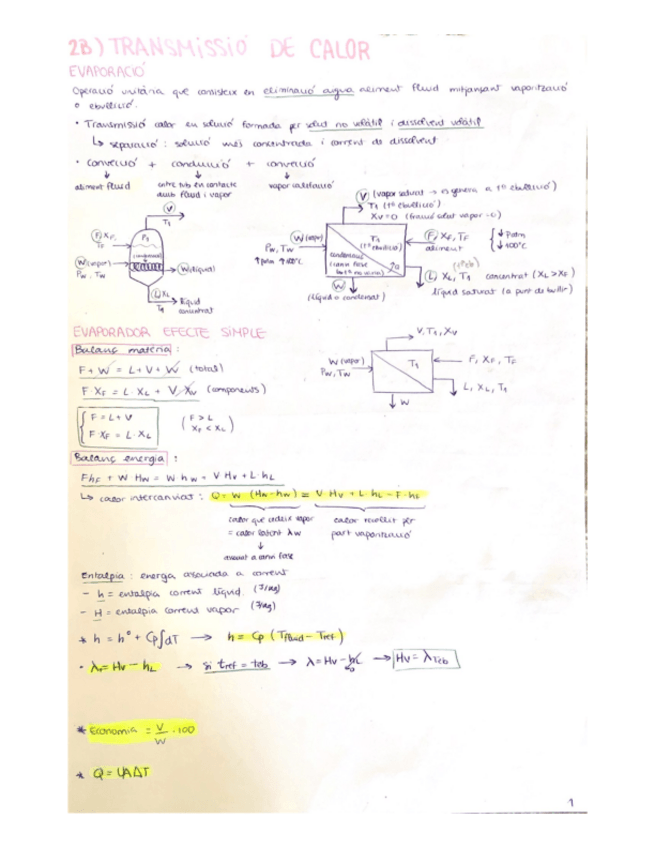 2B) TRANSMISSIÓ DE CALOR
EVAPORACIÓ
Operació unitària que consisteix en eliminació aigua aliment fluid mitjançant vaporització
o ebullició.
• Transmissió calor en solució formada per solut no volàtil i dissolvent volàtil
↳ separació: solució més concentrada i corrent de dissolvent
• convecció + conducció + convecció
aliment fluid
vapor calefacció
V (vapor saturat → es genera a tª ebullició)
T1 (tª ebullició)
Xv=0
V
T1
F, XF, TF
P1
W (vapor)
Pw, Tw
W (líquid)
L XL
T1
líquid
concentrat
W (vapor)
Pw, Tw
T1
(tª ebullició)
condensació
F, XF, TF
aliment
↓ Patm
↓ 100ºC
L XL, T1 concentrat (XL > XF)
líquid saturat (a punt de bullir)
W
(líquid o condensat)
EVAPORADOR EFECTE SIMPLE
Balanç matèria:
F + W = L + V + W (total)
F·XF = L·XL + V·Xv (components)
F = L + V
F·XF = L·XL
(F > L
XF < XL)
V, T1, Xv
W (vapor)
Pw, Tw
T1
F, XF, TF
L, XL, T1
W
Balanç energia:
F hF + W Hw = W hw + V Hv + L·hL
↳ calor intercanviat: Q = W (Hw - hw) = V·Hv + L·hL - F·hF
calor que cedeix vapor
= calor latent λw
calor recollit per
part vaporització
associat a canvi fase
Entalpia: energia associada a corrent
- h = entalpia corrent líquid (J/kg)
- H = entalpia corrent vapor (J/kg)
* h = hº + Cp∫dT → h = Cp (Tfluid - Tref)
• λ = Hv - hL → si tref = teb → λ = Hv - hL → Hv = λTeb
* Economia = V/W · 100
* Q = UAΔT
1